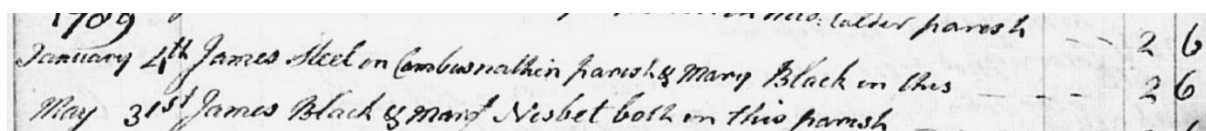 1789 in Mid: Calder parish -- 2 6
January 4th James Steel in Cambusnathin parish & Mary Black in this - - - 2 6
May 31st James Black & Margt Nisbet both in this parish